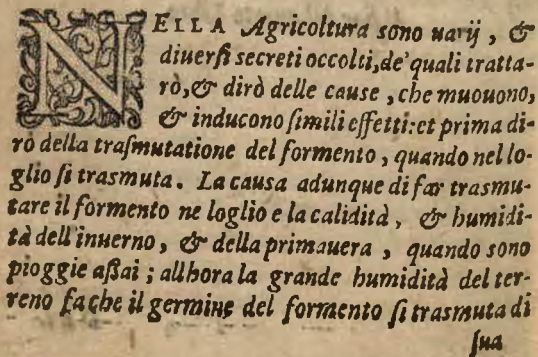 NELLA Agricoltura sono uarij, &
diuersi secreti occolti, de' quali tratta-
rò, & dirò delle cause, che muouono,
& inducono simili effetti: et prima di-
rò della trasmutatione del formento, quando nel lo-
glio si trasmuta. La causa adunque di far trasmu-
tare il formento ne loglio e la calidità, & humidi-
tà dell'inuerno, & della primauera, quando sono
pioggie aßai; allhora la grande humidità del ter-
reno fa che il germine del formento si trasmuta di
sua